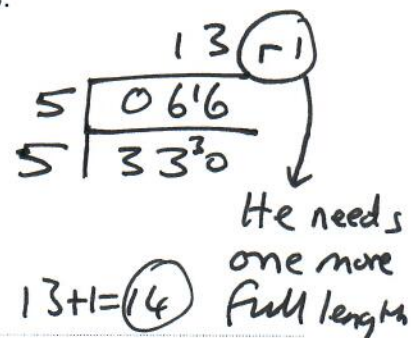 13 r1
5 0 6 ¹6
5 3 3 ³0
He needs
one more
full length
13+1=14